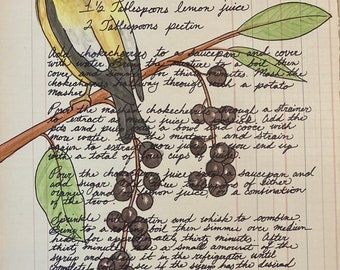 1 ½ Tablespoons lemon juice
2 Tablespoons pectin
Add chokecherries to a saucepan and cover
with water. Bring the mixture to a boil then
cover and simmer for thirty minutes. Mash the
chokecherries halfway through with a potato
masher.
Pour the mashed chokecherries through a strainer
to extract the juice. Add the
and pulp to a bowl & cover with
more water. the mixture and strain
again to extract more juice you end up
with a total of cups of
Pour the chokecherry juice into a saucepan and
add sugar of either
orange and lemon juice, or a combination
of the two.
Sprinkle pectin and whisk to combine.
Bring to a boil then simmer over medium
heat for approximately thirty minutes. After
thirty minutes a small amount of the
syrup and it in the refrigerator until
completely see if the syrup has the desired